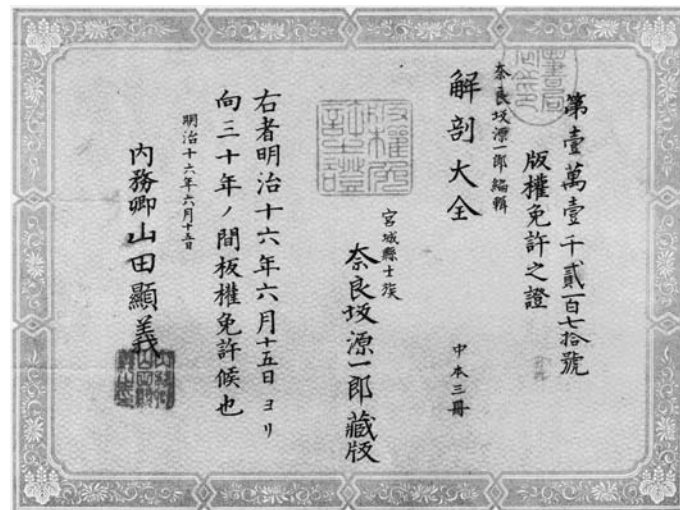 第壹萬壹千貳百七拾號
版權免許之證
奈良坂源一郎編輯
解剖大全
中本三冊
版權免許之證
宮城縣士族
奈良坂源一郎藏版
右者明治十六年六月十五日ヨリ
向三十年ノ間板權免許候也
明治十六年六月十五日
內務卿山田顯義